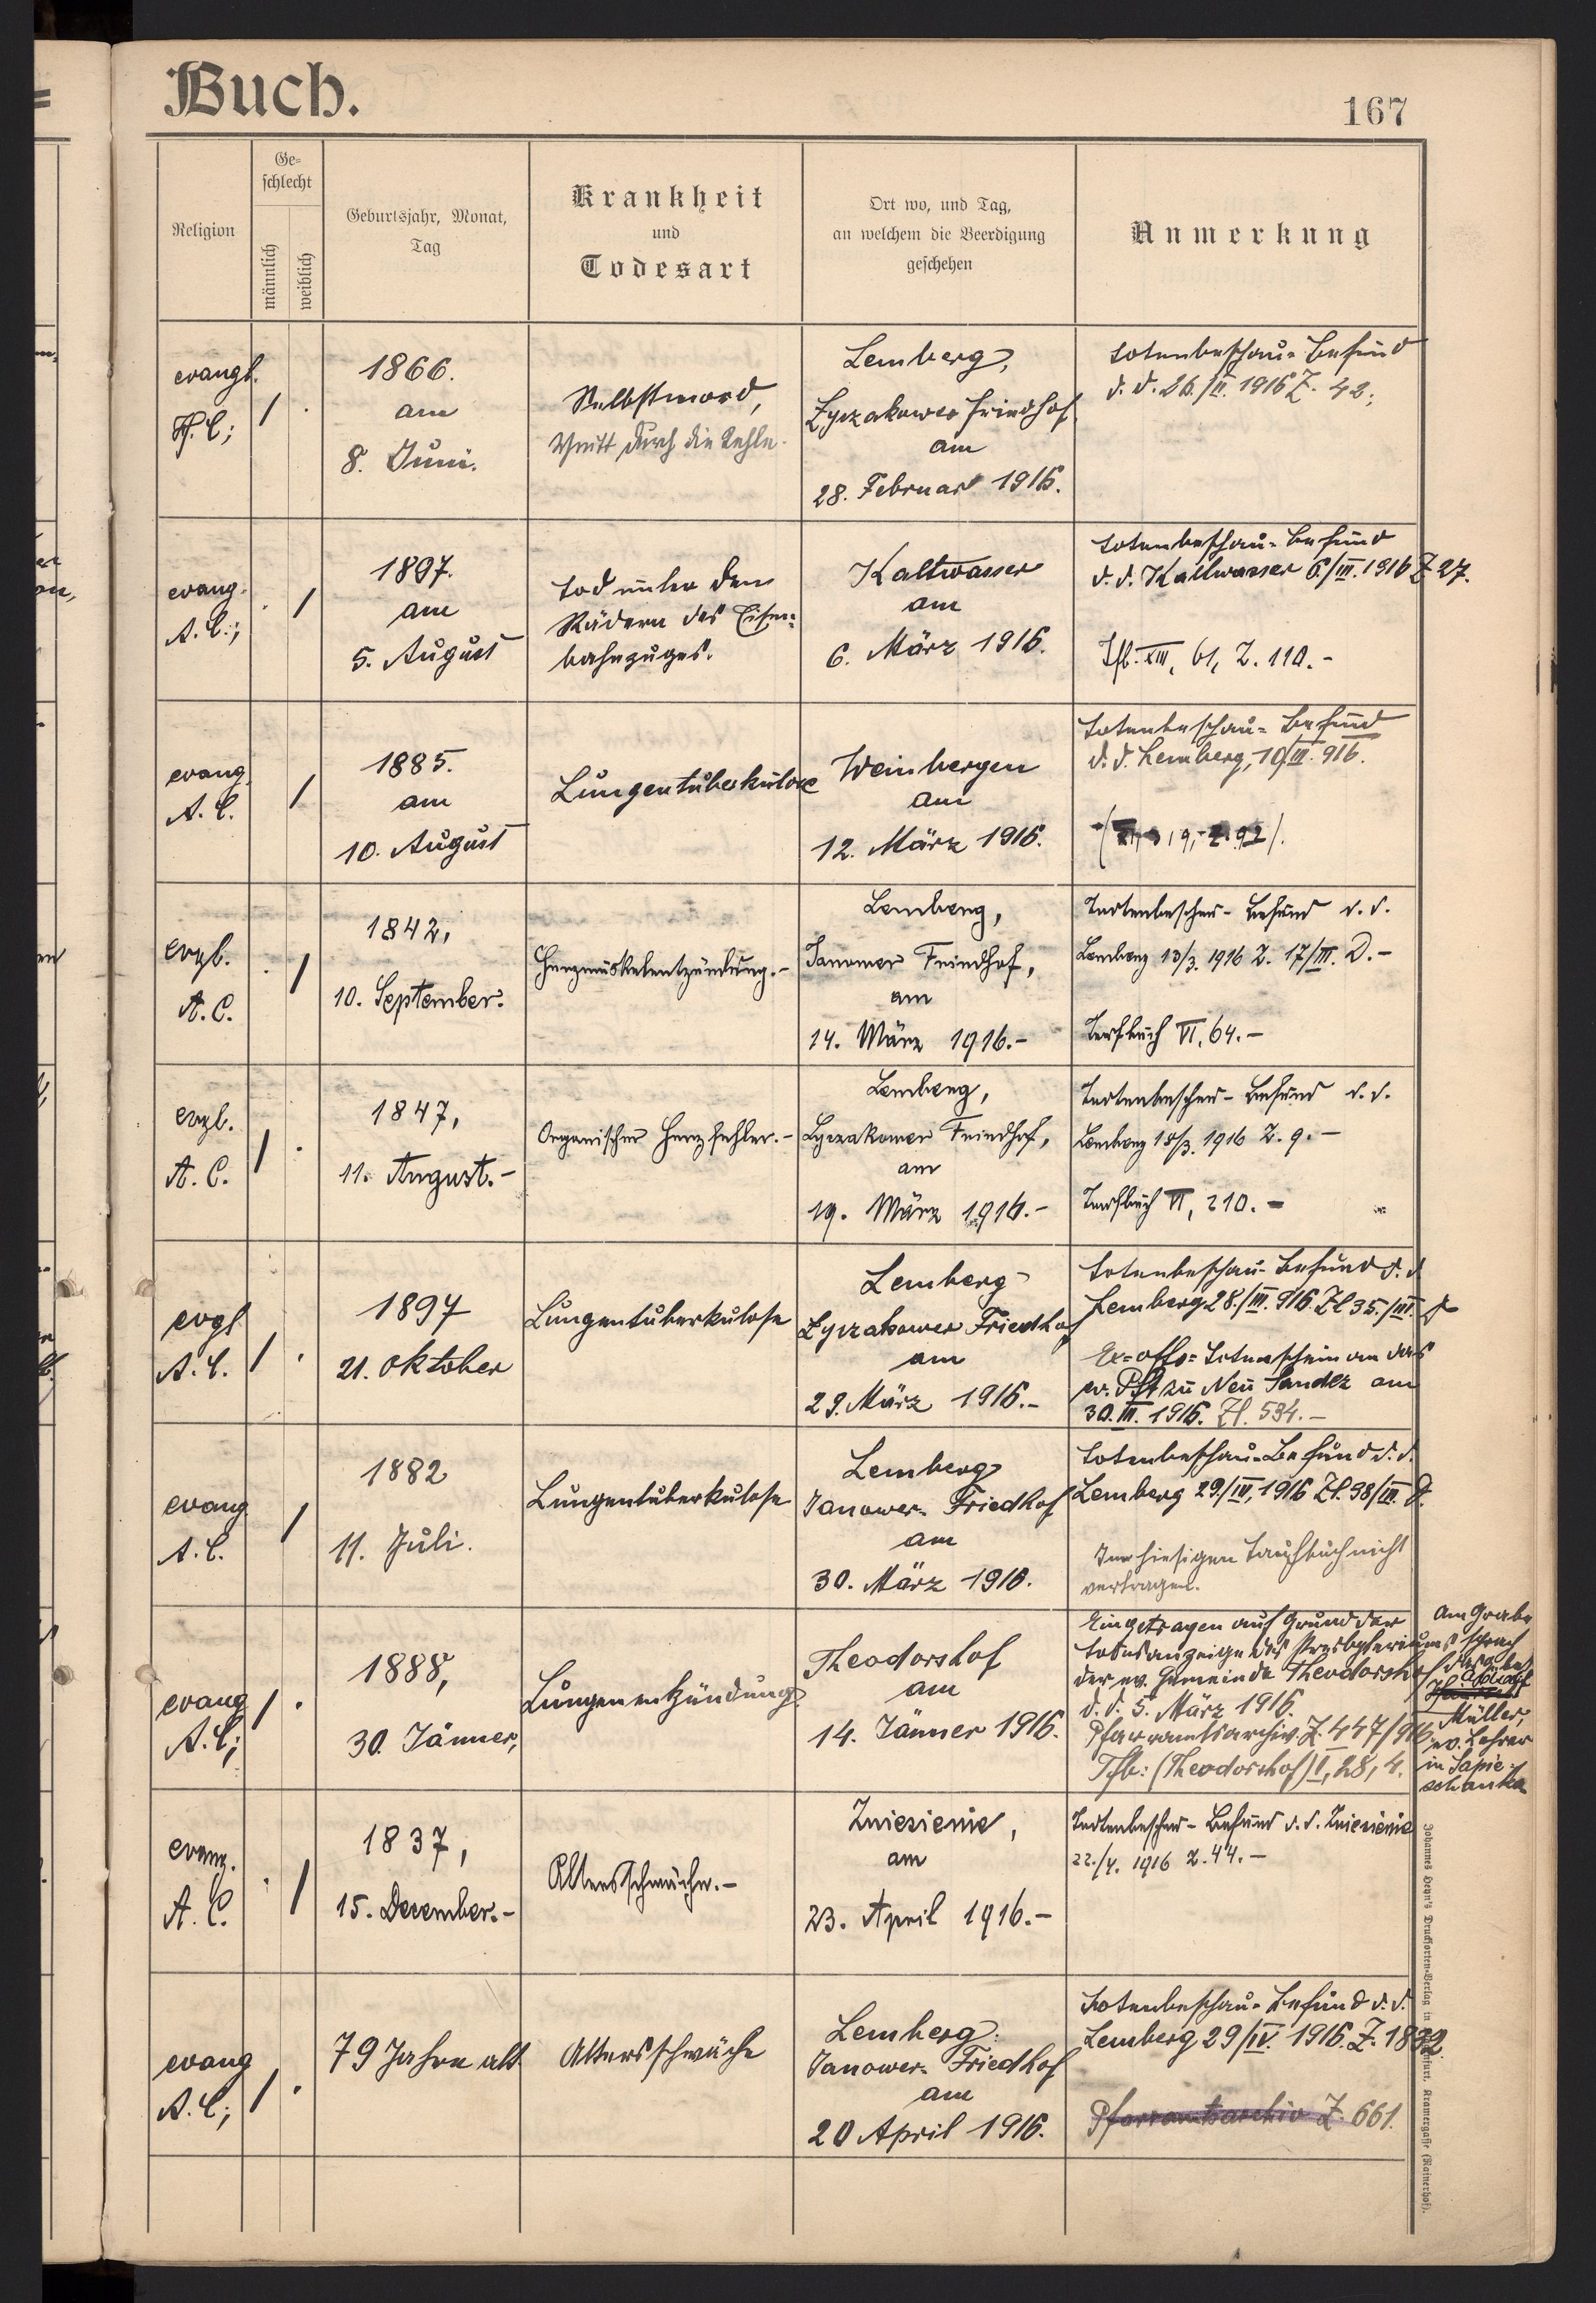 Buch.
167
Religion
Ge=
schlecht
männlich
weiblich
Geburtsjahr, Monat,
Tag
Krankheit
und
Todesart
Ort wo, und Tag,
an welchem die Beerdigung
geschehen
Anmerkung
evangl.
H. C;
1866.
am
8. Juni.
Selbstmord,
Schnitt durch die Kehle.
Lemberg,
Łyczakower Friedhof
am
28. Februar 1916.
Totenbeschau=Befund
d. d. 26./II. 1916 Z. 42;
evang.
A. C.;
1897.
am
5. August
Tod unter den
Rädern des Eisen=
bahnzuges.
Kaltwasser
am
6. März 1916.
Totenbeschau=Befund
d. d. Kaltwasser 6./III. 1916 Z 27.
Tfb. XIII, 61, Z. 110.-
evang.
A. C.
1885.
am
10. August
Lungentuberkulose
Weinbergen
am
12. März 1916.
Totenbeschau=Befund
d. d. Lemberg, 10/III. 916.
evgl.
A. C.
1842,
10. September.
Herzmuskelentzündung.-
Lemberg,
Janower Friedhof,
am
14. März 1916.-
Totenbeschau-Befund d. d.
Lemberg 13/3. 1916 Z. 17/III. D.-
Taufbuch VI, 64.-
evgl.
A. C.
1847,
11. August.-
Organischer Herzfehler.-
Lemberg,
Łyczakower Friedhof,
am
19. März 1916.-
Totenbeschau-Befund d. d.
Lemberg 18/3. 1916 Z. 9.-
Taufbuch VI, 210.-
evgl
A. C.
1897
21. Oktober
Lungentuberkulose
Lemberg
Łyczakower Friedhof
am
29. März 1916.-
Totenbeschau-Befund d. d.
Lemberg 28./III. 916. Zl 35./III.
Ex=offo=Totenschein an das
ev. Pft zu Neu Sandez am
30.III. 1916. Zl. 534.-
evang
A. C.
1882
11. Juli.
Lungentuberkulose
Lemberg
Janower Friedhof
am
30. März 1916.
Totenbeschau-Befund d. d.
Lemberg 29./IV, 1916 Zl. 38/III. D.
Im hiesigen Taufbuch nicht
vertragen.
evang
A. C;
1888,
30. Jänner,
Lungenentzündung
Theodorshof
am
14. Jänner 1916.
Eingetragen auf Grund der
Todesanzeige des Presbyteriums
der ev. Gemeinde Theodorshof
d. d. 5. März 1916.
Pfarramtsarchiv. Z. 447/916.
Tfb: (Theodorshof) I, 28, 4.
Am Grabe
sprach
Adolf
Müller,
ev. Lehrer
in Sapie-
schanka
evang.
A. C.
1837,
15. December.-
Altersschwäche.-
Zniesienie,
am
23. April 1916.-
Totenbeschau-Befund d. d. Zniesienie
22./4. 1916 Z. 44.-
evang
A. C;
79 Jahre alt
Altersschwäche
Lemberg:
Janower Friedhof
am
20 April 1916.
Totenbeschau=Befund d. d.
Lemberg 29/IV. 1916. Z. 1832.
Pfarramtsarchiv Z. 661.